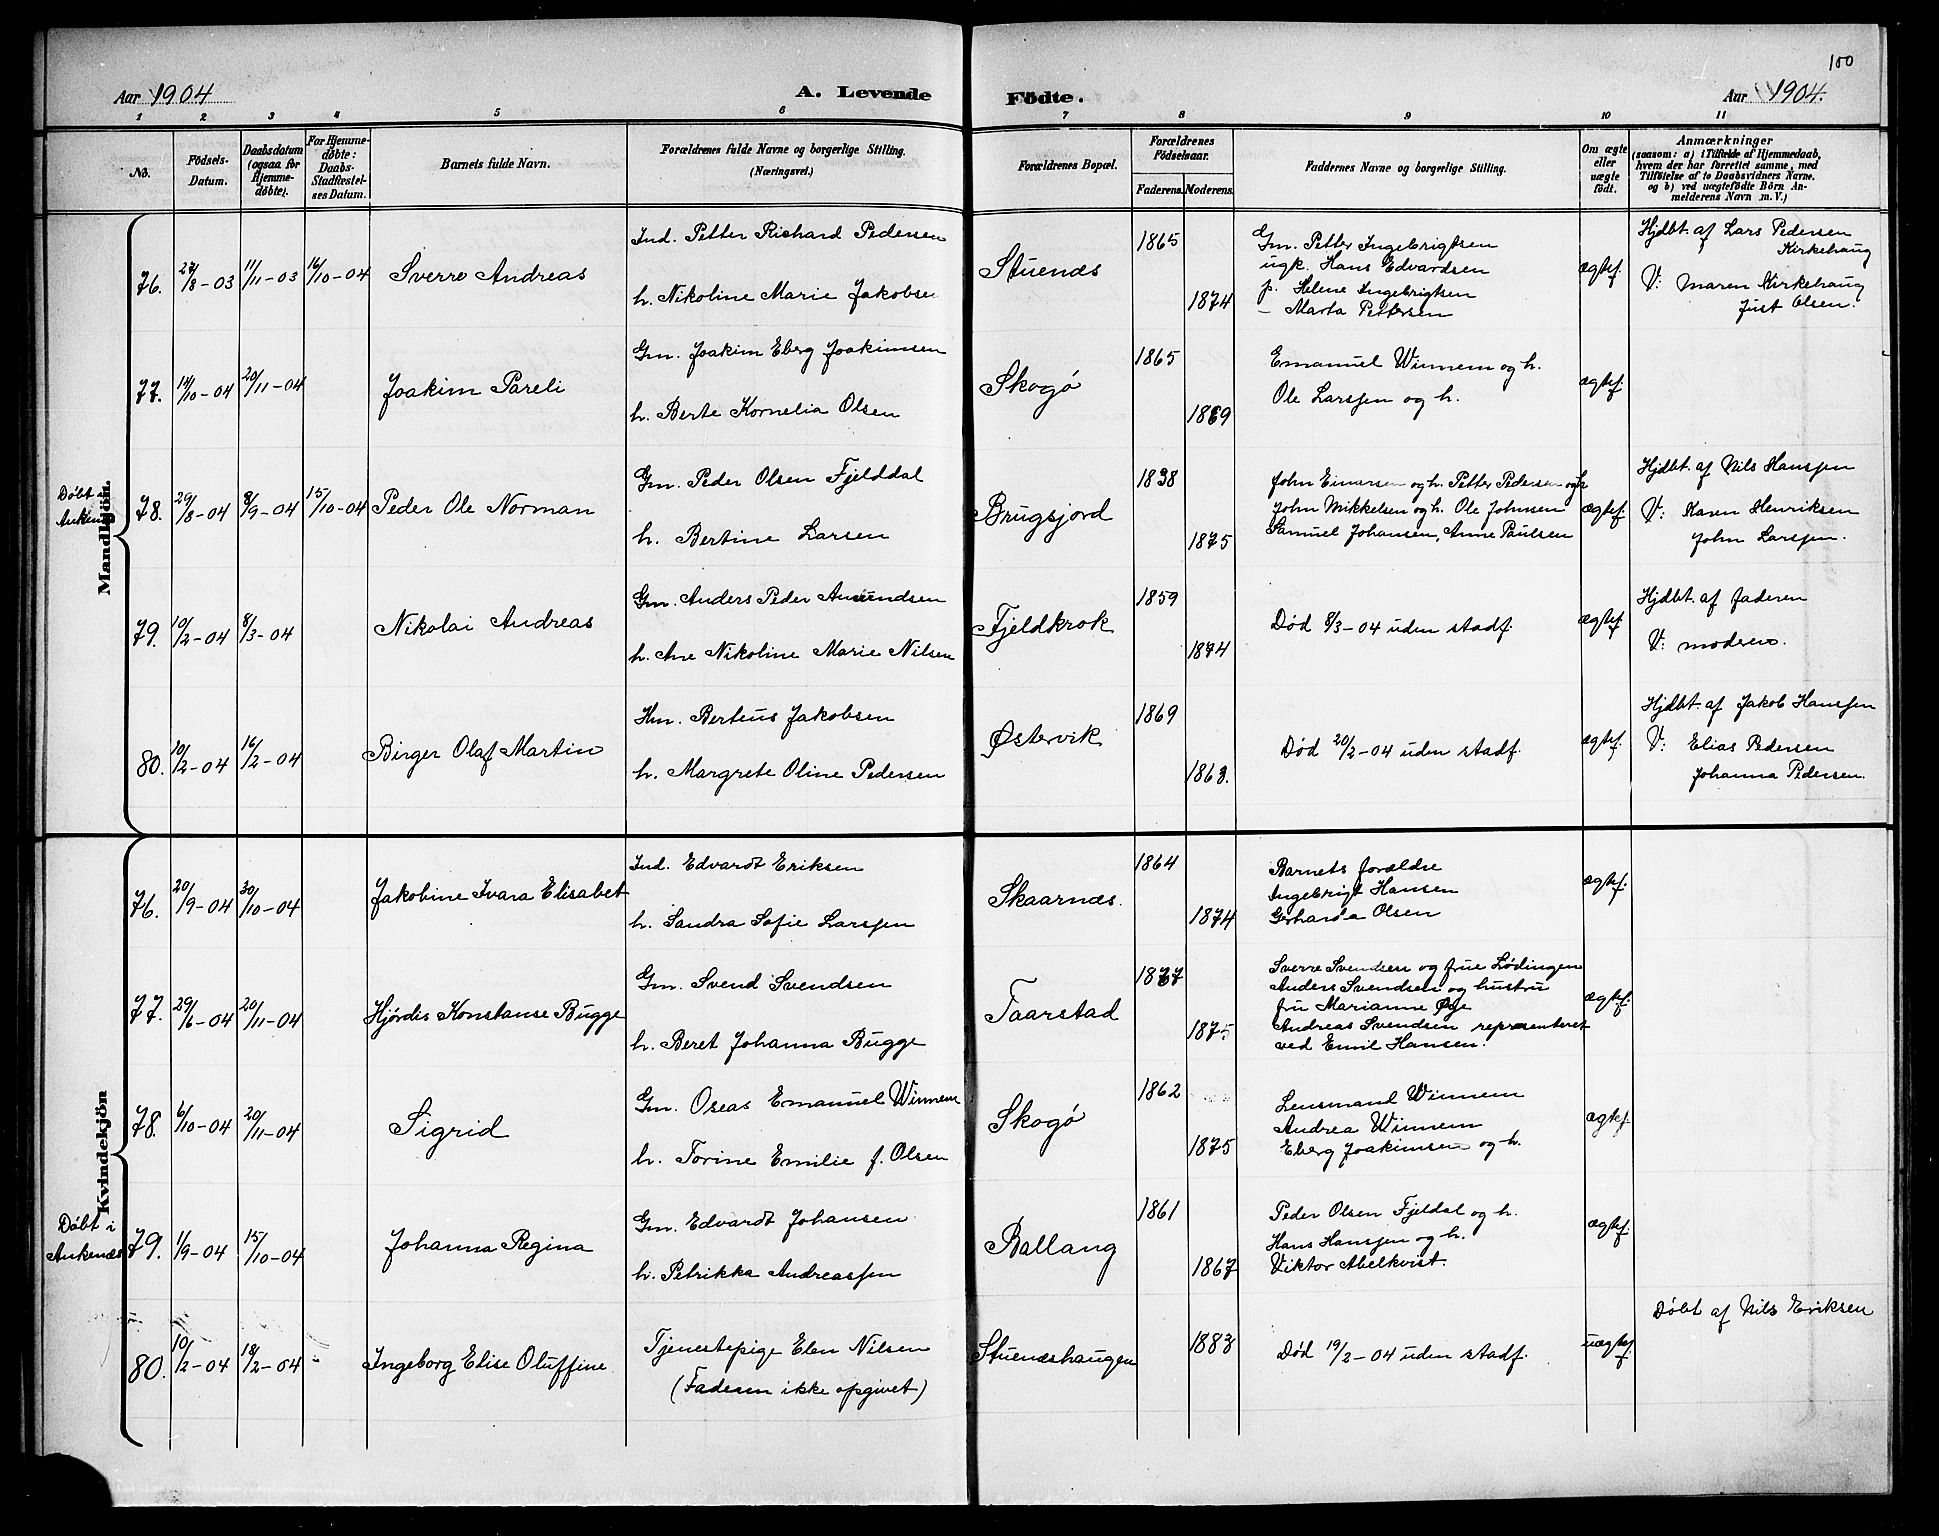 100
Aar 1904
A. Levende
Födte.
Aar 1904.
1 2 3 4 5 6 7 8 9 10 11
No.
Födsels-
Datum.
Daabsdatum
(ogsaa for
Hjemme-
døbte).
For Hjemme-
døbte:
Daabs-
Stadfæstel-
ses Datum.
Barnets fulde Navn.
Forældrenes fulde Navne og borgerlige Stilling.
(Næringsvei.)
Forældrenes Bopæl.
Forældrenes
Födselsaar.
Faderens. Moderens.
Faddernes Navne og borgerlige Stilling.
Om ægte
eller
uægte
födt.
Anmærkninger
(saasom: a) i Tilfælde af Hjemmedaab,
hvem der har forrettet samme, med
Tilföielse af to Daabsvidners Navne,
og b) ved uægtefödte Börn An-
melderens Navn m. V.)
Mandkjön.
76.
27/8-03
1/11-03
16/10-04
Sverre Andreas
Ind. Petter Richard Pedersen
h. Nikoline Marie Jakobsen
Stuenæs
1865
1874
Gm. Petter Ingebrigtsen
ugk. Hans Edvardsen
p. Helene Ingebrigtsen
– Marta Pettersen
ægtef.
Hjdbt. af Lars Pedersen
Kirkehaug
V: Maren Kirkehaug
Just Olsen.
77.
14/10-04
20/11-04
Joakim Pareli
Gm. Joakim Eberg Joakimsen
h. Berte Kornelia Olsen
Skogø
1865
1869
Emanuel Winnem og h.
Ole Larssen og h.
ægtef.
Døbt i
Ankenæs
78.
29/8-04
8/9-04
15/10-04
Peder Ole Norman
Gm. Peder Olsen Fjelddal
h. Bertine Larsen
Brugsjord
1838
1875
John Einarsen og h. Petter Pedersen og h
John Mikkelsen og h. Ole Johnsen
Samuel Johansen, Anne Paulsen
ægtef.
Hjdbt. af Nils Hanssen
V: Karen Henriksen
John Larssen.
79.
10/2-04
8/3-04
Nikolai Andreas
Gm. Anders Peder Amundsen
h. Ane Nikoline Marie Nilsen
Fjeldkrok
1859
1874
Død 8/3-04 uden stadf.
ægtef.
Hjdbt. af faderen
V: moderen.
80.
10/2-04
16/2-04
Birger Olaf Martin
Hm. Berteus Jakobsen
h. Margrete Oline Pedersen
Østervik
1869
1863.
Død 20/2-04 uden stadf.
ægtef.
Hjdbt. af Jakob Hanssen
V: Elias Pedersen
Johanna Pedersen.
Kvindekjön
76.
20/9-04
30/10-04
Jakobine Ivara Elisabet
Ind. Edvardt Eriksen
h. Sandra Sofie Larssen
Skaarnæs.
1864
1874
Barnets forældre
Ingebrigt Hansen
Gerharda Olsen
ægtef.
77.
29/6-04
20/11-04
Hjørdis Konstanse Bugge
Gm. Svend Svendsen
h. Beret Johanna Bugge
Taarstad
1877
1875
Sverre Svendsen og frue Lødingen
Anders Svendsen og hustru
fru Marianne Øye
Andreas Svendsen representeret
ved Emil Hansen.
ægtef.
78.
6/10-04
20/11-04
Sigrid
Gm. Oseas Emanuel Winnem
h. Torine Emilie f. Olsen
Skogø
1862
1875
Lensmand Winnem
Andrea Winnem
Eberg Joakimsen og h.
ægtef.
Døbt i
Ankenæs
79.
1/9-04
15/10-04
Johanna Regina
Gm. Edvardt Johansen
h. Petrikka Andreassen
Ballang
1861
1867
Peder Olsen Fjeldal og h.
Hans Hanssen og h.
Viktor Abelkvist.
ægtef.
80.
10/2-04
18/2-04
Ingeborg Elise Oluffine
Tjenestepige Elen Nilsen
(Faderen ikke opgivet)
Stuenæshaugen
1883
Død 19/2-04 uden stadf.
uægtef.
Døbt af Nils Eriksen